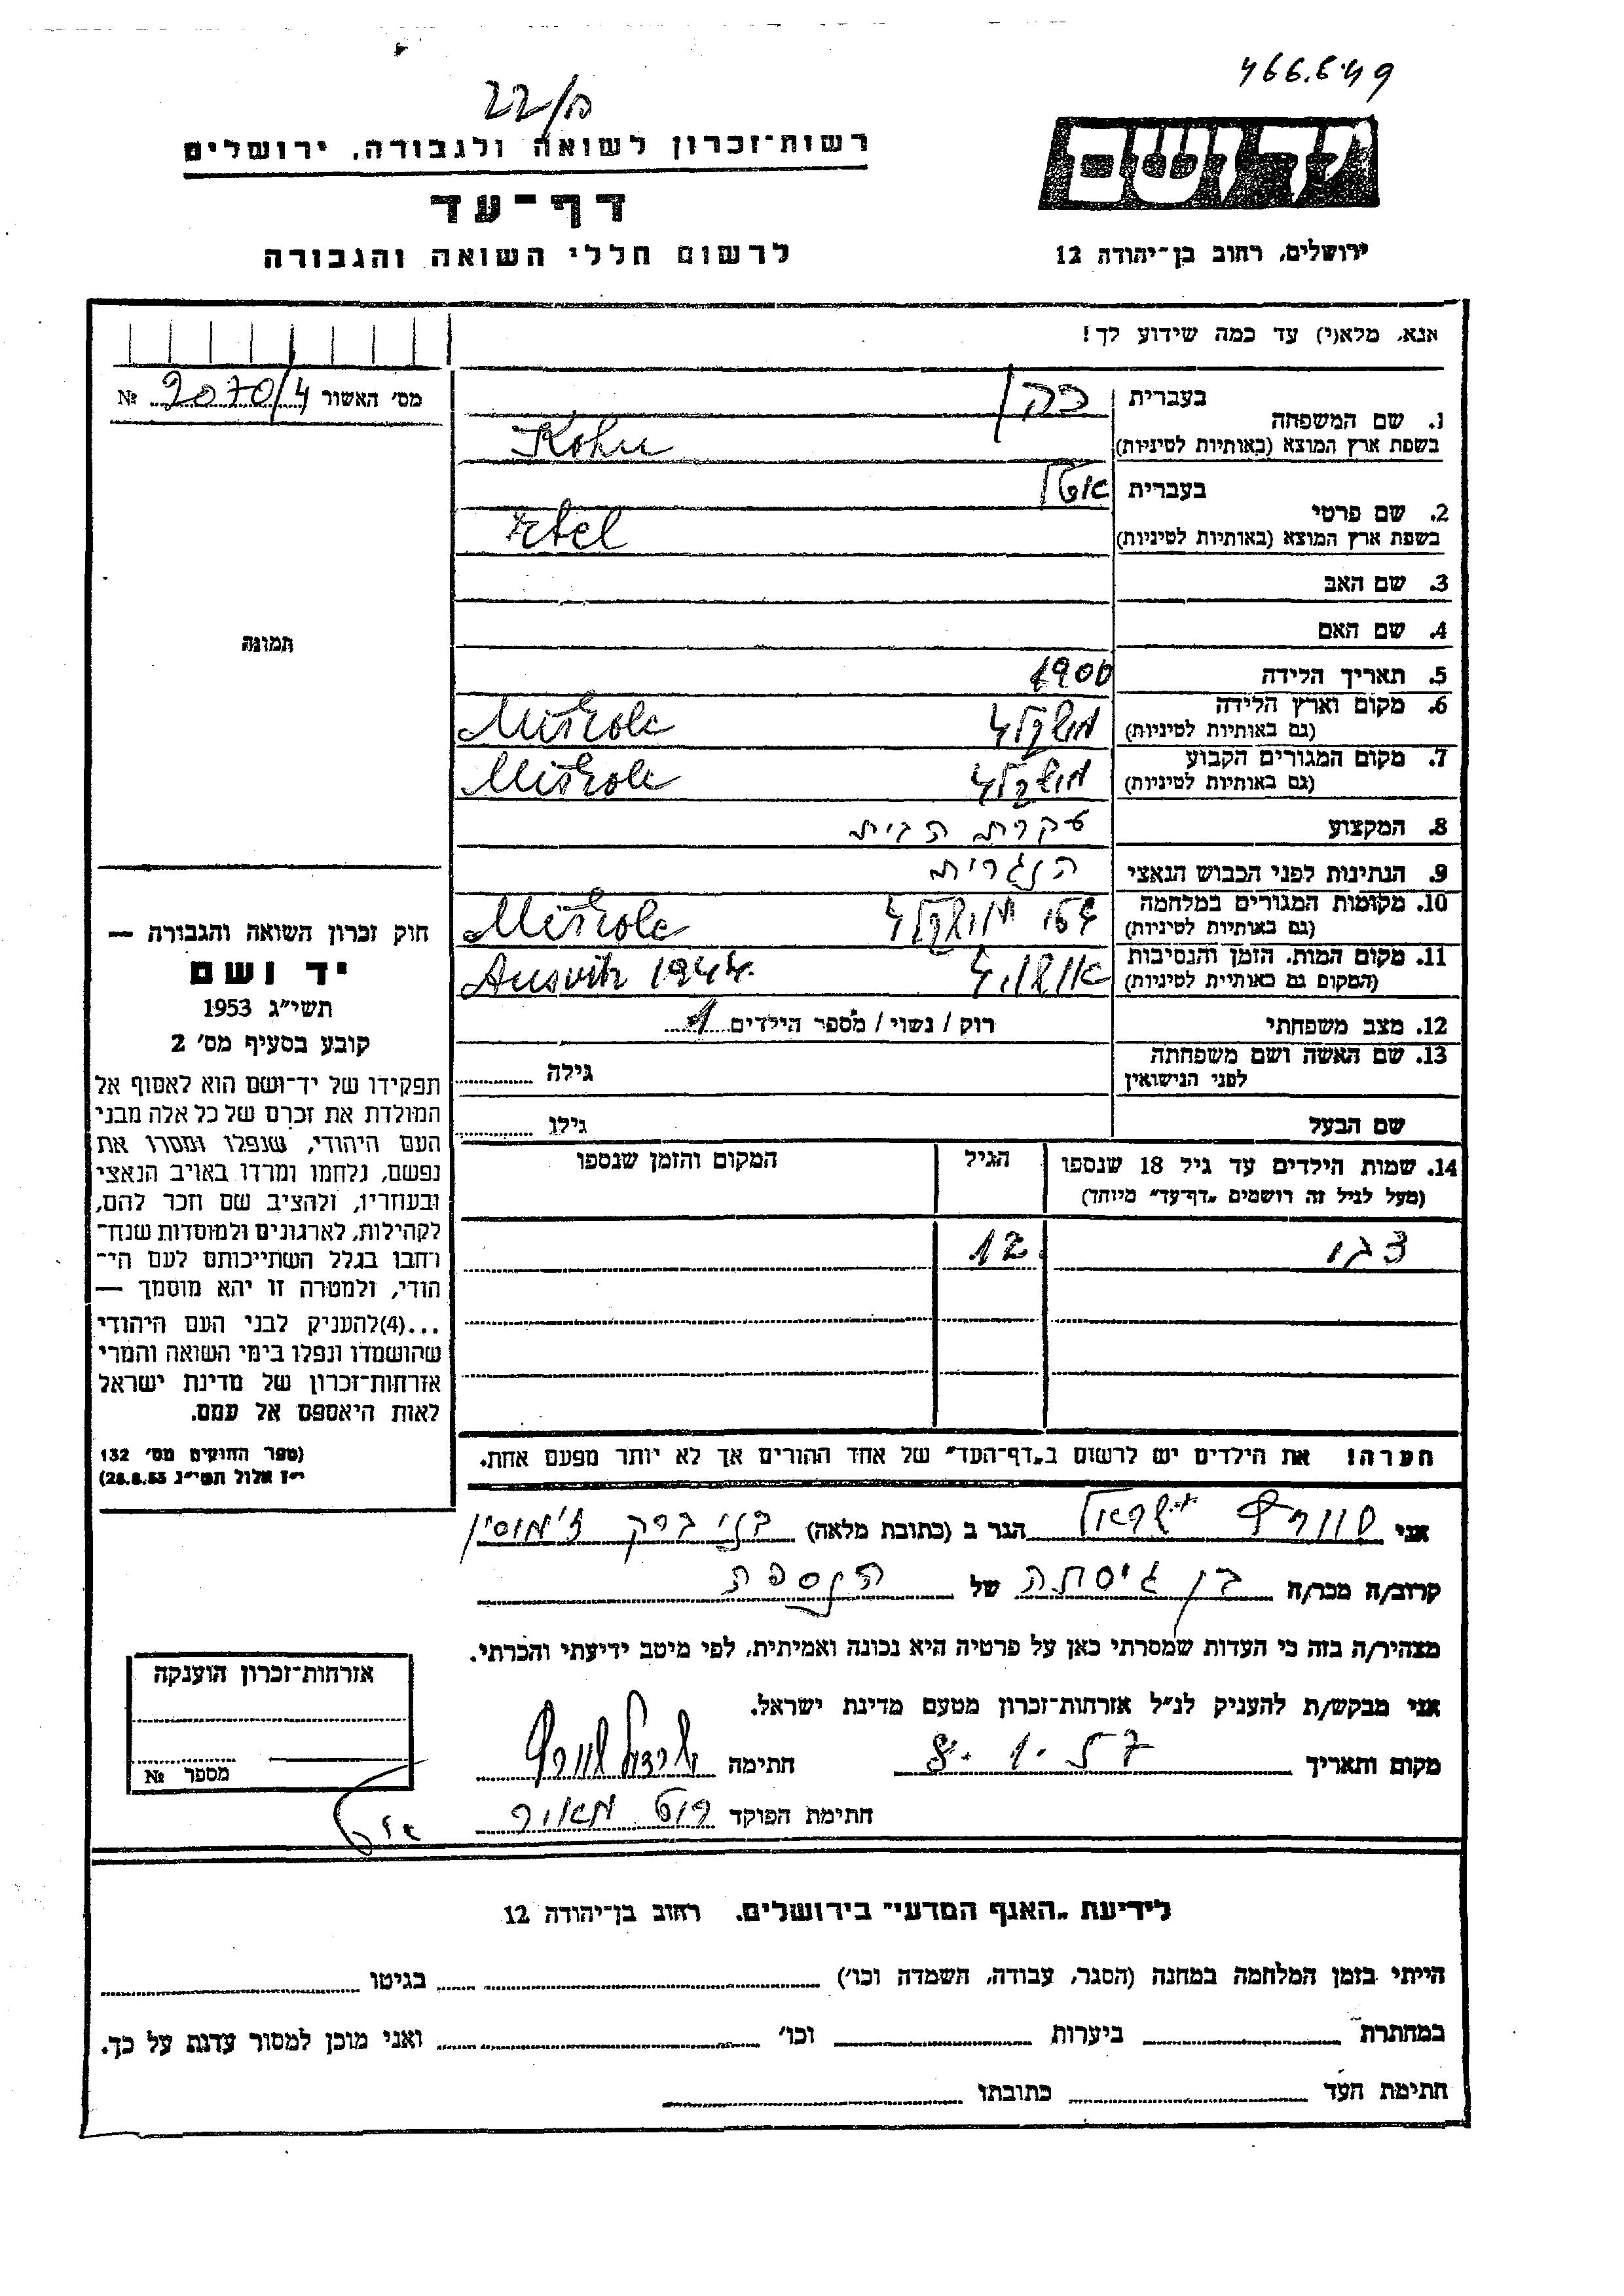 466.649
22/ח
רשות־זכרון לשואה ולגבורה, ירושלים
יד ושם
דף־עד
לרשום חללי השואה והגבורה
ירושלים, רחוב בן־יהודה 12
אנא, מלא(י) עד כמה שידוע לך!
מס׳ האשור 2070/4 №
1. שם המשפחה בעברית כהן
בשפת ארץ המוצא (באותיות לטיניות) Kohn
2. שם פרטי בעברית אטל
בשפת ארץ המוצא (באותיות לטיניות) Etel
3. שם האב
4. שם האם
תמונה
5. תאריך הלידה 1900
6. מקום וארץ הלידה (גם באותיות לטיניות) מישקולץ Miskolc
7. מקום המגורים הקבוע (גם באותיות לטיניות) מישקולץ Miskolc
8. המקצוע עקרת הבית
9. הנתינות לפני הכבוש הנאצי הונגרית
10. מקומות המגורים במלחמה (גם באותיות לטיניות) מישקולץ Miskolc
11. מקום המות, הזמן והנסיבות (המקום גם באותיית לטיניות) אושויץ Ausvitz 1944.
12. מצב משפחתי רוק / נשוי / מספר הילדים 1
13. שם האשה ושם משפחתה לפני הנישואין גילה
שם הבעל גילו
14. שמות הילדים עד גיל 18 שנספו הגיל המקום והזמן שנספו
(מעל לגיל זה רושמים „דף־עד״ מיוחד)
12
הערה! את הילדים יש לרשום ב„דף־העד״ של אחד ההורים אך לא יותר מפעם אחת.
חוק זכרון השואה והגבורה —
יד ושם
תשי״ג 1953
קובע בסעיף מס׳ 2
תפקידו של יד־ושם הוא לאסוף אל
המולדת את זכרם של כל אלה מבני
העם היהודי, שנפלו ומסרו את
נפשם, נלחמו ומרדו באויב הנאצי
ובעוזריו, ולהציב שם וזכר להם,
לקהילות, לארגונים ולמוסדות שנח־
רחבו בגלל השתייכותם לעם הי־
הודי, ולמטרה זו יהא מוסמך —
...(4)להעניק לבני העם היהודי
שהושמדו ונפלו בימי השואה והמרי
אזרחות־זכרון של מדינת ישראל
לאות היאספם אל עמם.
(ספר החוקים מס׳ 132
י״ז אלול תשי״ג 28.8.53)
אני ישראל הגר ב (כתובת מלאה) בני ברק
קרוב/ה מכר/ה בן גיסתה של הנספת
מצהיר/ה בזה כי העדות שמסרתי כאן על פרטיה היא נכונה ואמיתית, לפי מיטב ידיעתי והכרתי.
אני מבקש/ת להעניק לנ״ל אזרחות־זכרון מטעם מדינת ישראל.
מקום ותאריך 8.1.57 חתימה
חתימת הפוקד רוט מאיר
אזרחות־זכרון הוענקה
מספר №
לידיעת „האגף המדעי״ בירושלים, רחוב בן־יהודה 12
הייתי בזמן המלחמה במחנה (הסגר, עבודה, השמדה וכו׳) בגיטו
במחתרת ביערות וכו׳ ואני מוכן למסור עדות על כך.
חתימת העד כתובתו